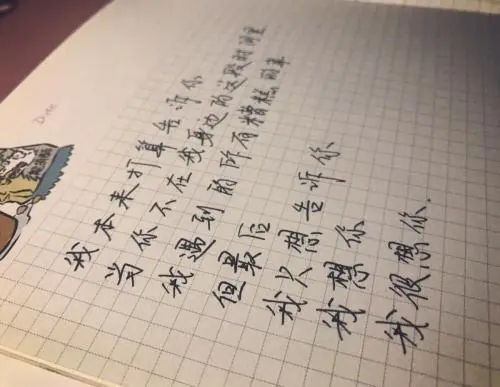 Dive
我本来打算告诉你
当你不在我身边的这段时间里
我遇到的所有糟糕的事
但最后
我只想告诉你
我想你
我很想你.